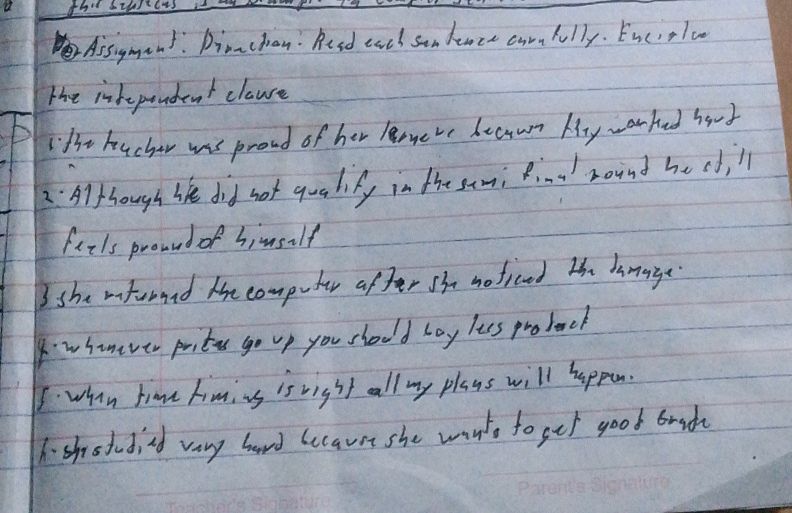 Assignment: Direction: Read each sentence carefully. Encircle
the independent clause
1. the teacher was proud of her because they worked hard
2. Although he did not qualify in the semi final round he still
feels proud of himself
3 she returned the computer after she noticed the damage.
4. whenever go up you should buy less product
5. when time timing is right all my plans will happen.
6. she studied very hard because she wants to get good Grade
Teacher's Signature
Parent's Signature